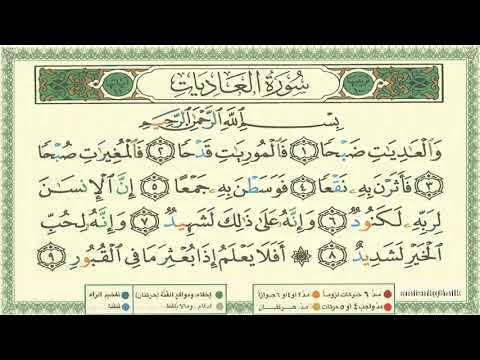 سُورَةُ العَادِيَاتِ
بِسْمِ اللَّهِ الرَّحْمَٰنِ الرَّحِيمِ
وَالْعَادِيَاتِ ضَبْحًا ١ فَالْمُورِيَاتِ قَدْحًا ٢ فَالْمُغِيرَاتِ صُبْحًا
٣ فَأَثَرْنَ بِهِ نَقْعًا ٤ فَوَسَطْنَ بِهِ جَمْعًا ٥ إِنَّ الْإِنْسَانَ
لِرَبِّهِ لَكَنُودٌ ٦ وَإِنَّهُ عَلَىٰ ذَٰلِكَ لَشَهِيدٌ ٧ وَإِنَّهُ لِحُبِّ
الْخَيْرِ لَشَدِيدٌ ٨ ۞ أَفَلَا يَعْلَمُ إِذَا بُعْثِرَ مَا فِي الْقُبُورِ ٩
مدّ ٦ حركات لزوماً مدّ ٢ او ٤ او ٦ جوازاً إخفاء، ومواقع الغُنَّة (حركتان) تفخيم الراء
مدّ واجب ٤ او ٥ حركات مدّ حركتان إدغام، وما لا يُلفظ قلقلة